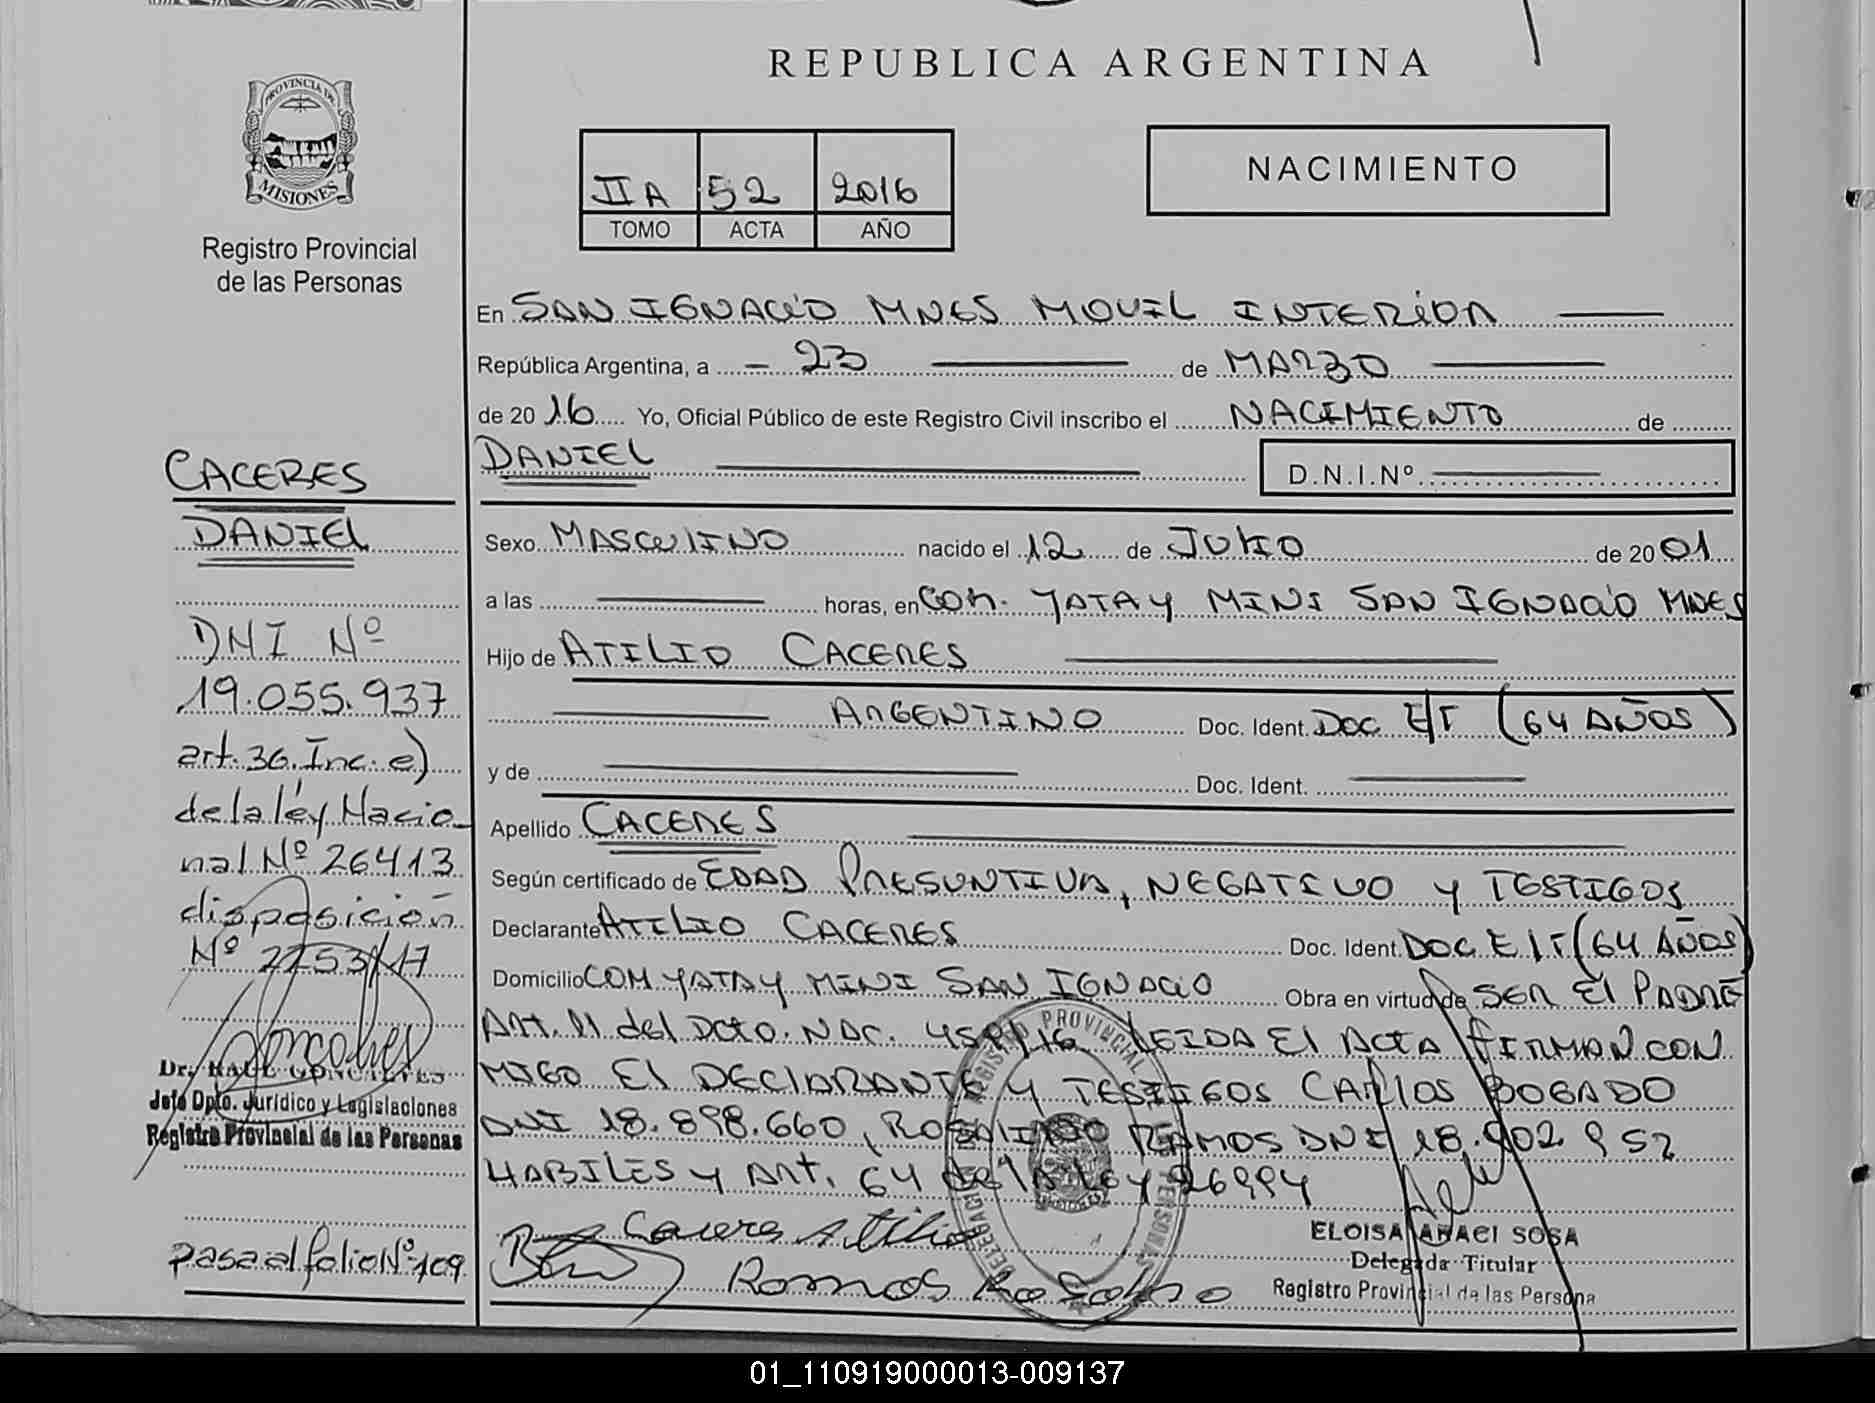 PROVINCIA DE
MISIONES
Registro Provincial
de las Personas
CACERES
DANIEL
DNI Nº
19.055.937
art. 36. Inc. e)
de la léy Nacio_
nal Nº 26413
disposición
Nº 2253/17
Dr. RAUL GONCALVES
Jefe Dpto. Jurídico y Legislaciones
Registro Provincial de las Personas
pasa al folio Nº 109
REPUBLICA ARGENTINA
II A 52 2016
TOMO ACTA AÑO
NACIMIENTO
En SAN IGNACIO MNES MOVIL INTERIOR
República Argentina, a - 23 de MARZO
de 20 16 Yo, Oficial Público de este Registro Civil inscribo el NACIMIENTO de
DANIEL D.N.I.Nº
Sexo MASCULINO nacido el 12 de JULIO de 20 01
a las horas, en COM. YATAY MINI SAN IGNACIO MNES
Hijo de ATILIO CACERES
ARGENTINO Doc. Ident. DOC E/T (64 AÑOS)
y de Doc. Ident.
Apellido CACERES
Según certificado de EDAD PRESUNTIVA, NEGATIVO Y TESTIGOS
Declarante ATILIO CACERES Doc. Ident. DOC E/T (64 AÑOS)
Domicilio COM YATAY MINI SAN IGNACIO Obra en virtud de SER El PADRE
Art. 11 del Dcto. NAC. /16 LEIDA El ACTA FIRMAN CON
MIGO El DECLARANTE Y TESTIGOS CARLOS BOGADO
DNI 18.898.660, ROSALINO RAMOS DNI 18.902 952
HABILES Y Art. 64 de la Ley 26994
Caceres Atilio
Ramos Rosalino
REGISTRO PROVINCIAL DE LAS PERSONAS
ELOISA ANACI SOSA
Delegada Titular
Registro Provincial de las Persona
01_110919000013-009137